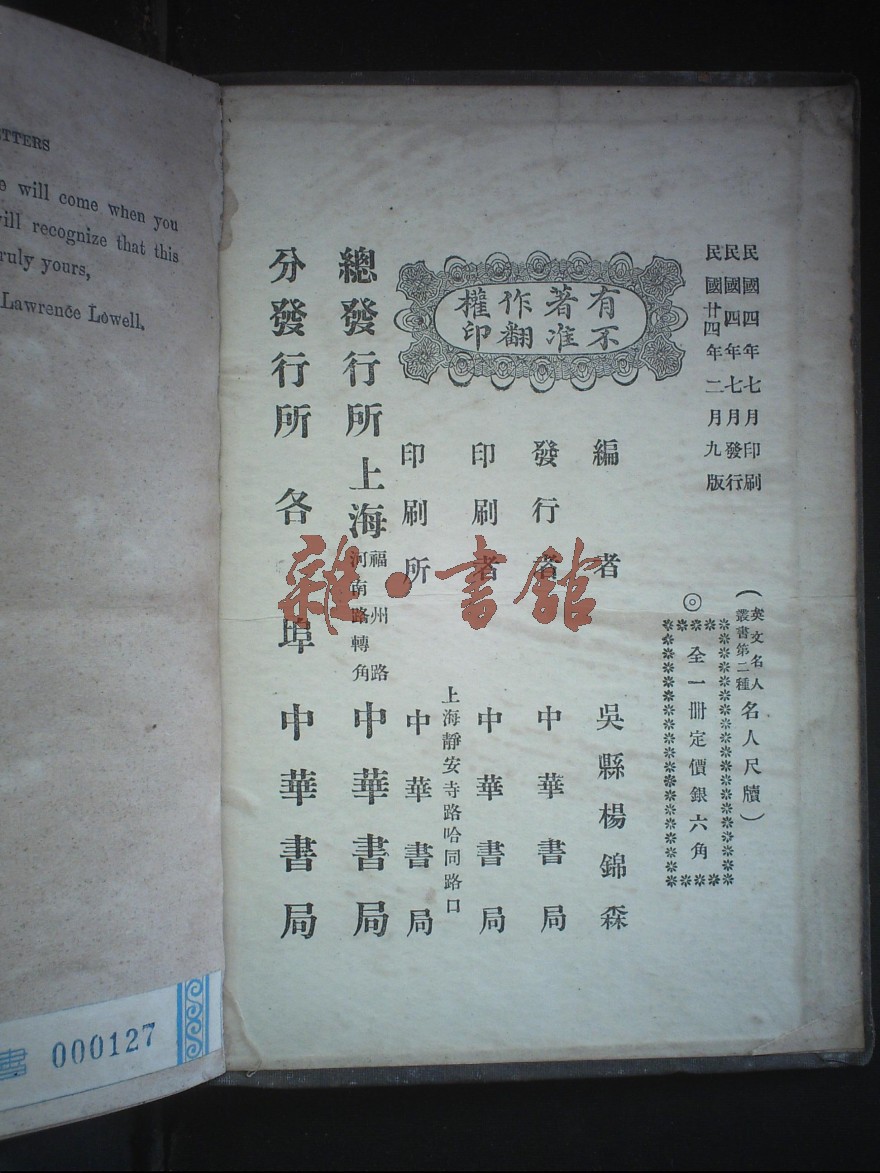 ETTERS
e will come when you
ill recognize that this
ruly yours,
Lawrence Lowell.
書 000127
民國四年七月印刷
民國四年七月發行
民國廿四年二月九版
(英文名人叢書第二種 名人尺牘)
◎全一冊定價銀六角
有著作權
不准翻印
編者 吳縣楊錦森
發行者 中華書局
印刷者 中華書局
上海靜安寺路哈同路口
印刷所 中華書局
總發行所 上海 福州路河南路轉角 中華書局
分發行所 各埠 中華書局
雜·書館